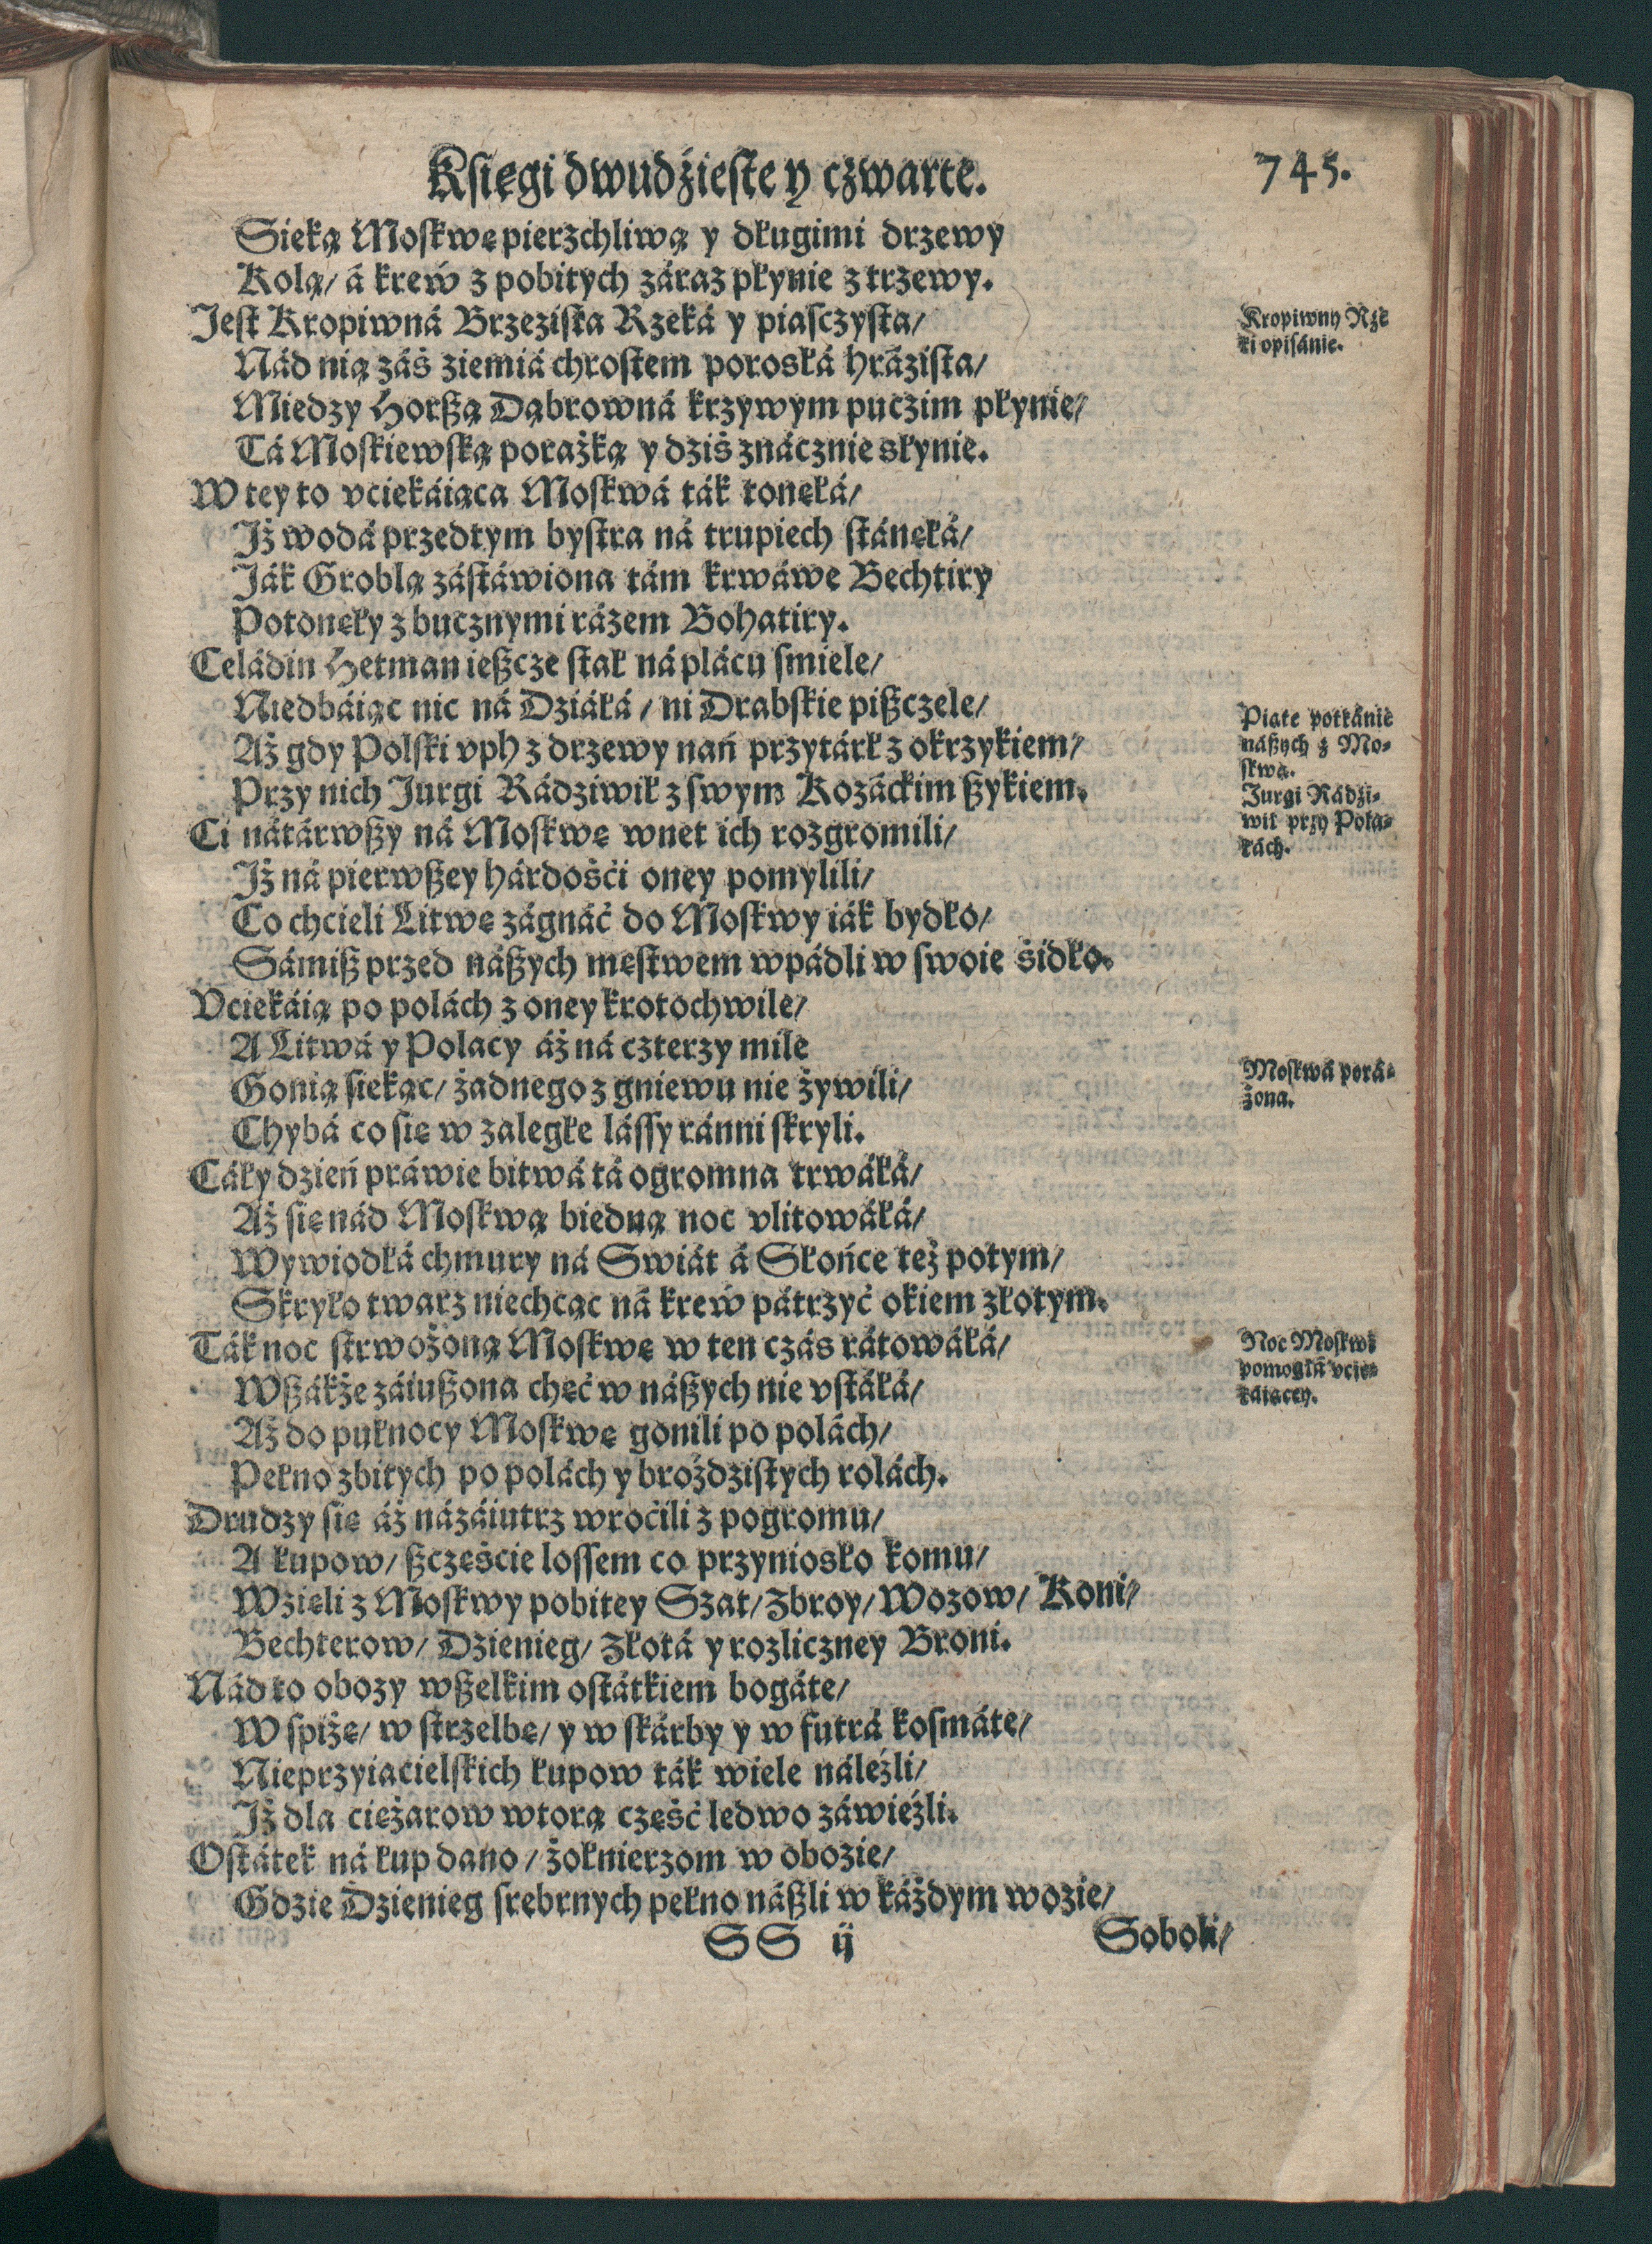 Kśięgi dwudźieste y czwarte. 745.
Sieką Moskwę pierzchliwą y długimi drzewy
Kolą/ á krew z pobitych záraz płynie z trzewy.
Jest Kropiwná Brzezista Rzeká y piasczysta/
Nád nią záś ziemiá chrostem porosłá hrázista/
Miedzy Horßą Dąbrowná krzywym puczim płynie/
Tá Moskiewską porażką y dziś znácznie słynie.
W tey to vciekáiąca Moskwá ták tonęłá/
Jż wodá przedtym bystra ná trupiech stánęłá/
Ják Groblą zástáwiona tám krwáwe Bechtiry
Potonęły z bucznymi rázem Bohatiry.
Celádin Hetman ießcze stał ná plácu smiele/
Niedbáiąc nic ná Dziáłá/ ni Drabskie pißczele/
Aż gdy Polski vph z drzewy nań przytárł z okrzykiem/
Przy nich Jurgi Rádziwił z swym Kozáckim ßykiem.
Ci nátárwßy ná Moskwę wnet ich rozgromili/
Jż ná pierwßey hárdośći oney pomylili/
Co chcieli Litwę zágnáć do Moskwy iák bydło/
Sámiß przed náßych męstwem wpádli w swoie śidło.
Vciekáią po polách z oney krotochwile/
A Litwá y Polacy áż ná czterzy mile
Gonią siekąc/ żadnego z gniewu nie żywili/
Chybá co się w zaległe lássy ránni skryli.
Cáły dzień práwie bitwá tá ogromna trwáłá/
Aż się nád Moskwą biedną noc vlitowáłá/
Wywiodłá chmury ná Swiát á Słońce też potym/
Skryło twarz niechcąc ná krew pátrzyć okiem złotym.
Ták noc strwożoną Moskwę w ten czás rátowáłá/
Wßákże záiußona chęć w náßych nie vstáłá/
Aż do pułnocy Moskwę gonili po polách/
Pełno zbitych po polách y brożdzistych rolách.
Drudzy się áż názáiutrz wroćili z pogromu/
A łupow/ ßczęście lossem co przyniosło komu/
Wzięli z Moskwy pobitey Szat/ Zbroy/ Wozow/ Koni/
Bechterow/ Dzienieg/ Złotá y rozliczney Broni.
Nád to obozy wßelkim ostátkiem bogáte/
W spiżę/ w strzelbę/ y w skárby y w futrá kosmáte/
Nieprzyiacielskich łupow ták wiele náleźli/
Jż dla ciężarow wtorą część ledwo záwieźli.
Ostátek ná łup dano/ żołnierzom w obozie/
Gdzie Dzienieg srebrnych pełno náßli w káżdym wozie/
SS ij Soboli/
Kropiwny Rze
ki opisánie.
Piąte potkánie
náßych z Mo-
skwą.
Jurgi Rádzi-
wił przy Pola-
kách.
Moskwá porá-
żona.
Noc Moskwi
pomogłá vcie-
káiącey.